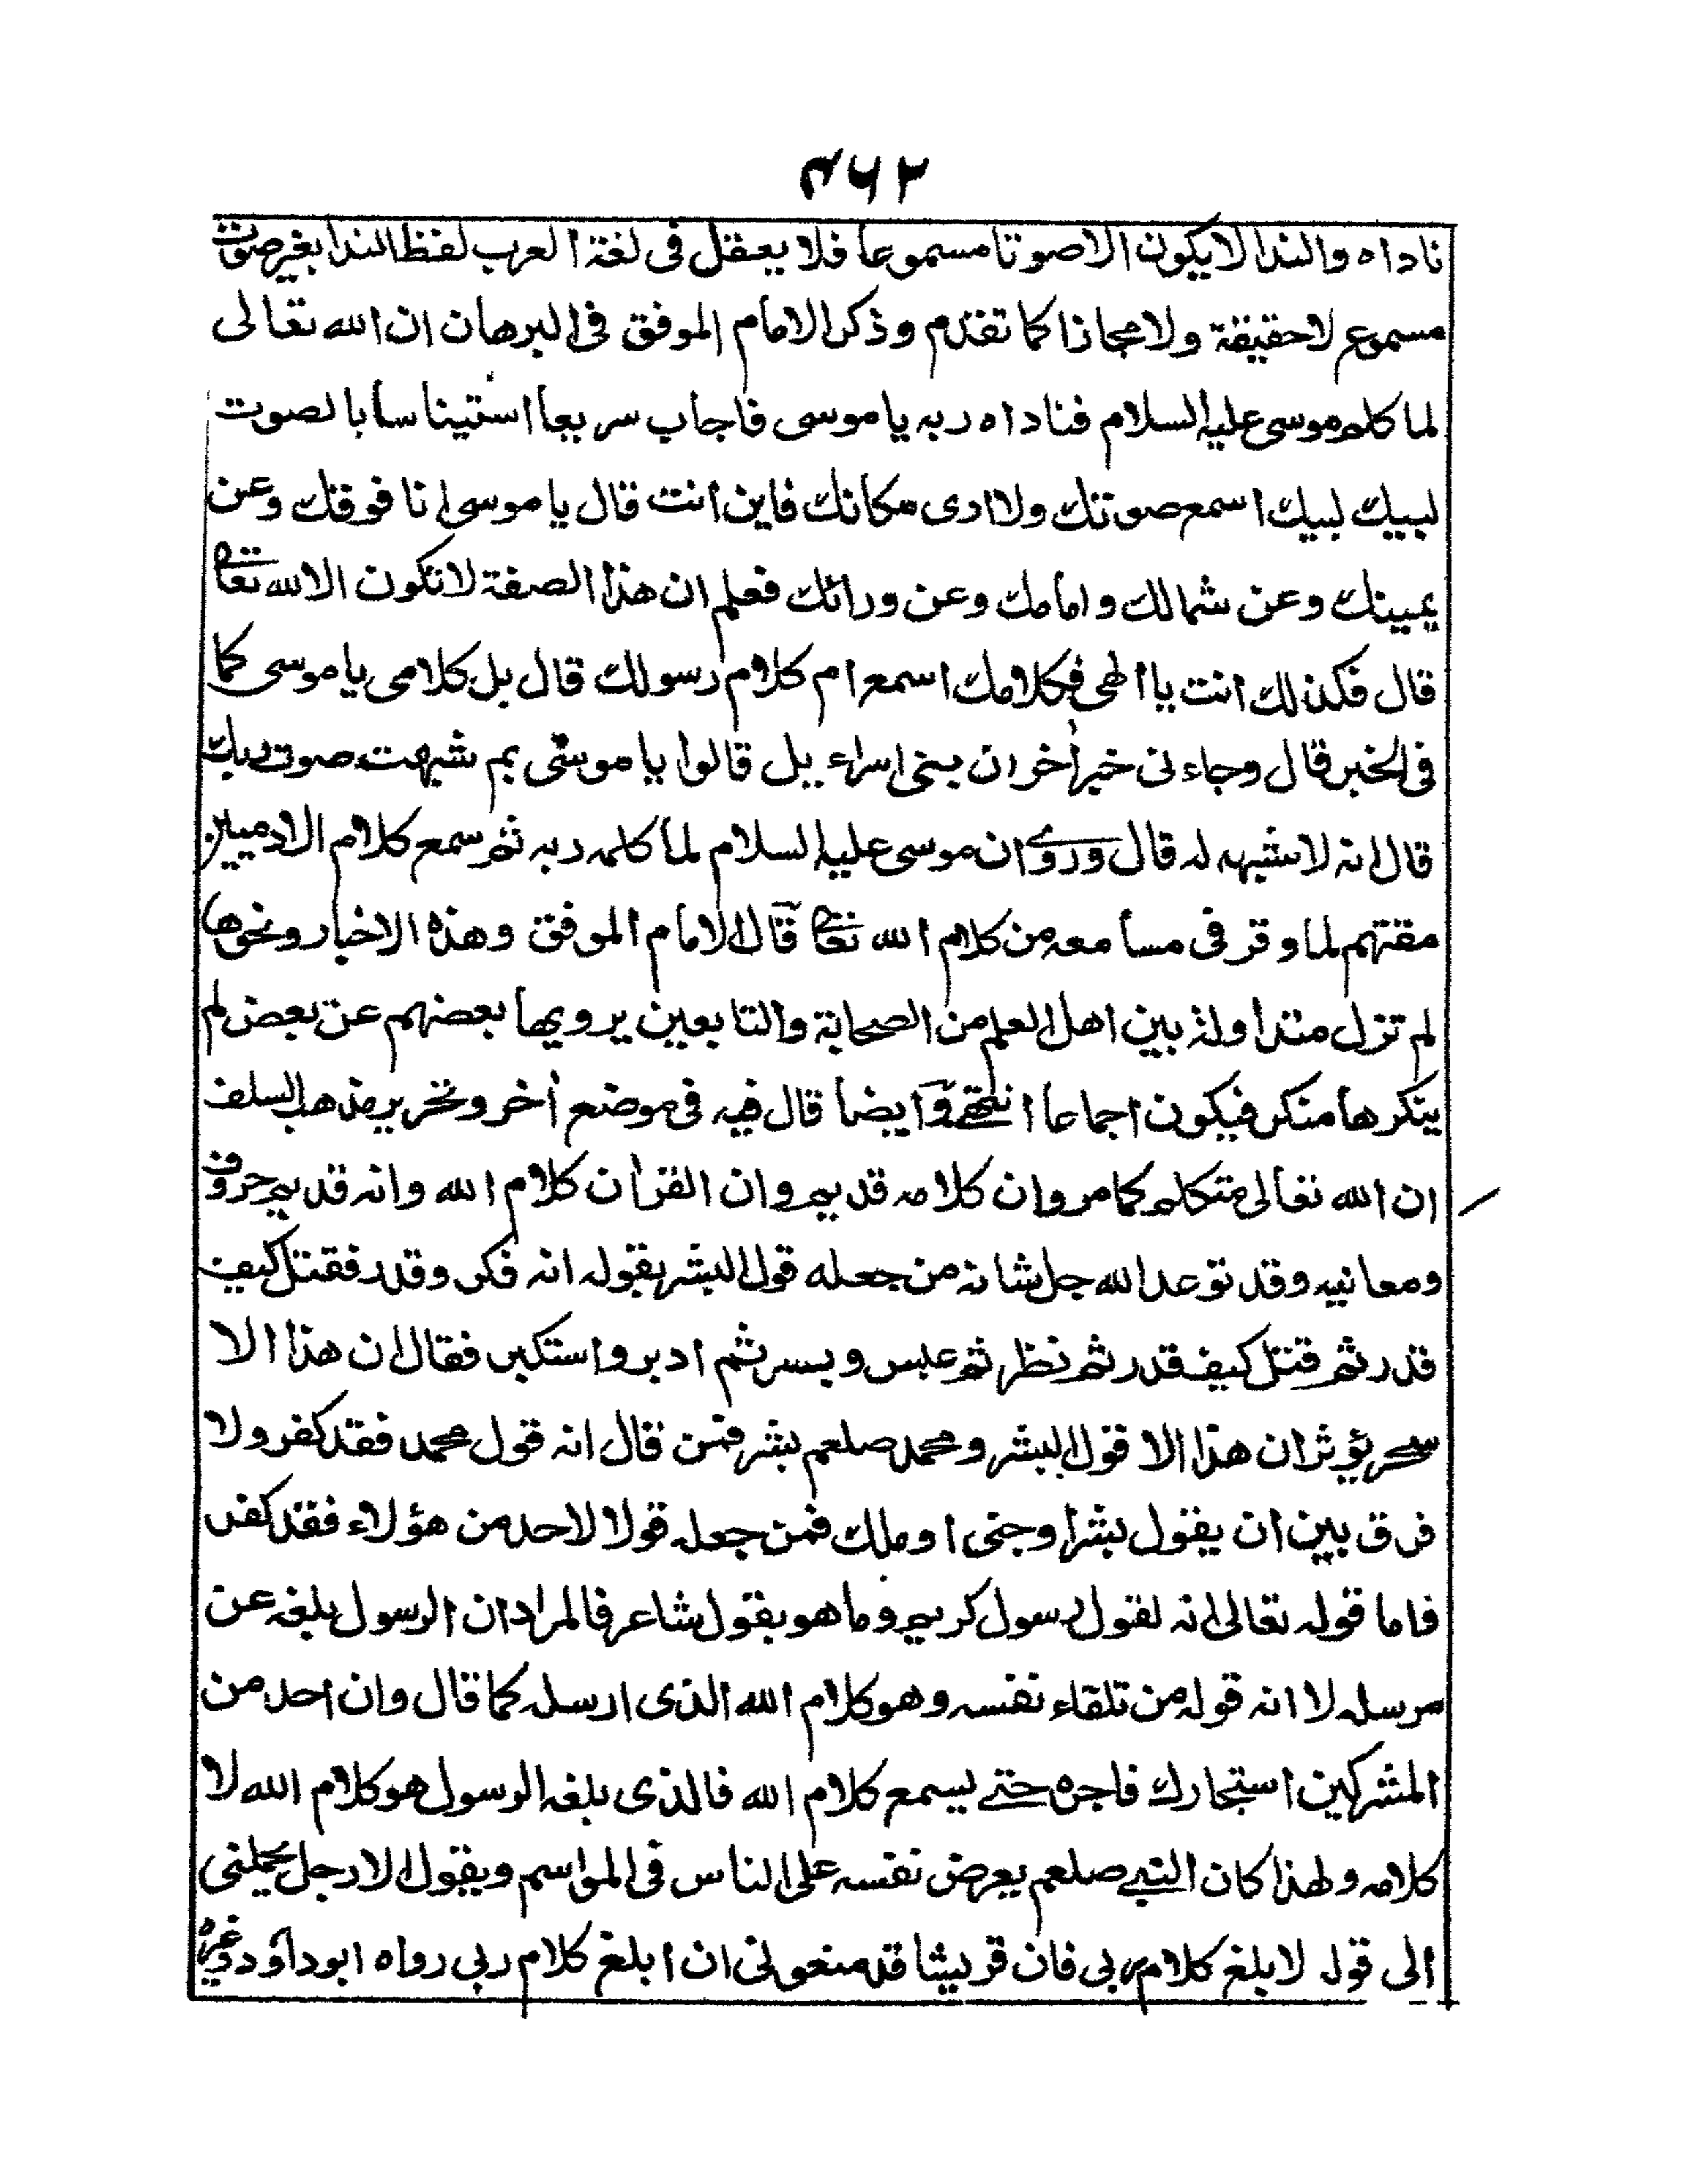 ۴۶۲
ناداه والندا لا يكون الا صوتا مسموعا فلا يعقل فى لغة العرب لفظ الندا بغير صوت
مسموع لا حقيقة ولا مجازا كما تقدم وذكر الامام الموفق فى البرهان ان الله تعالى
لما كلم موسى عليه السلام فناداه ربه يا موسى فاجاب سريعا استيناسا بالصوت
لبيك لبيك اسمع صوتك ولا ارى مكانك فاين انت قال يا موسى انا فوقك وعن
يمينك وعن شمالك وامامك وعن ورائك فعلم ان هذا الصفة لا تكون الا لله تعا
قال فكذلك انت يا الهى فكلامك اسمع ام كلام رسولك قال بل كلامى يا موسى كما
فى الخبر قال وجاء فى خبر اخر ان بنى اسراءيل قالوا يا موسى بم شبهت صوت ربك
قال انه لا شبه له قال وروى ان موسى عليه السلام لما كلمه ربه ثم سمع كلام الادميين
مقتهم لما وقر فى مسامعه من كلام الله تعا قال الامام الموفق وهذه الاخبار ونحوها
لم تزل متداولة بين اهل العلم من الصحابة والتابعين يرويها بعضهم عن بعض لم
ينكرها منكر فيكون اجماعا انتهى وايضا قال فيه فى موضع اخر وتحرير مذهب السلف
ان الله تعالى متكلم كما مر وان كلامه قديم وان القران كلام الله وانه قديم حروفه
ومعانيه وقد توعد الله جل شانه من جعله قول البشر بقوله انه فكر وقدر فقتل كيف
قدر ثم قتل كيف قدر ثم نظر ثم عبس وبسر ثم ادبر واستكبر فقال ان هذا الا
سحر يؤثر ان هذا الا قول البشر ومحمد صلعم بشر فمن قال انه قول محمد فقد كفر ولا
فرق بين ان يقول بشر او جنى او ملك فمن جعله قولا لاحد من هؤلاء فقد كفر
فاما قوله تعالى انه لقول رسول كريم وما هو بقول شاعر فالمراد ان الرسول بلغه عن
مرسله لا انه قوله من تلقاء نفسه وهو كلام الله الذى ارسله كما قال وان احد من
المشركين استجارك فاجره حتى يسمع كلام الله فالذى بلغه الرسول هو كلام الله لا
كلامه ولهذا كان النبى صلعم يعرض نفسه على الناس فى المواسم ويقول الا رجل يحملنى
الى قوله لابلغ كلام ربى فان قريشا قد منعونى ان ابلغ كلام ربى رواه ابو داود وغيره